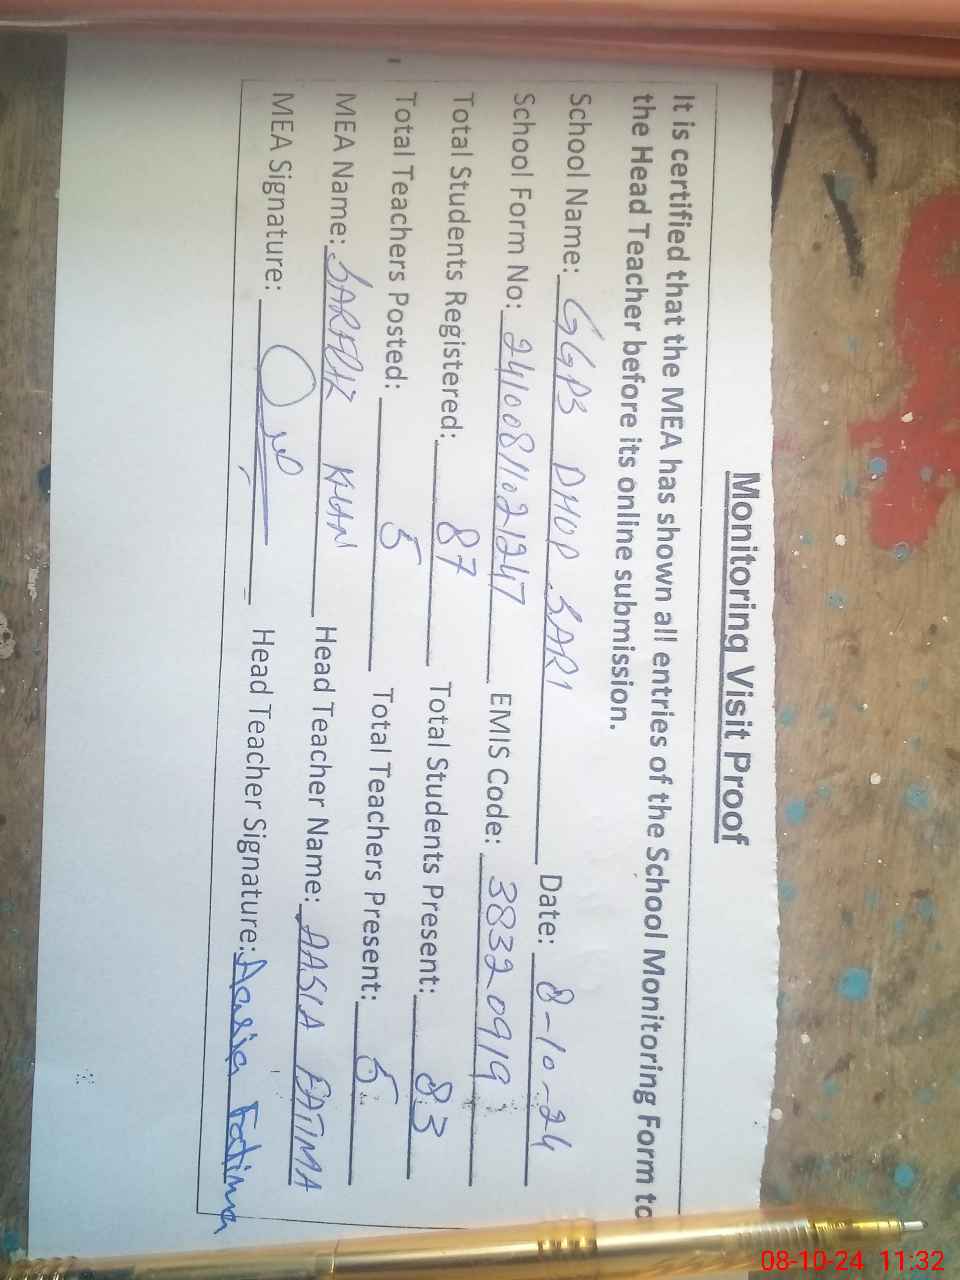 Monitoring Visit Proof
It is certified that the MEA has shown all entries of the School Monitoring Form to
the Head Teacher before its online submission.
School Name: GGPS DHOP SARI Date: 8-10-24
School Form No: 24100811021247 EMIS Code: 38320919
Total Students Registered: 87 Total Students Present: 83
Total Teachers Posted: 5 Total Teachers Present: 5
MEA Name: SARFRAZ KHAN Head Teacher Name: AASIA FATIMA
MEA Signature: Head Teacher Signature: Aasia Fatima
08-10-24 11:32